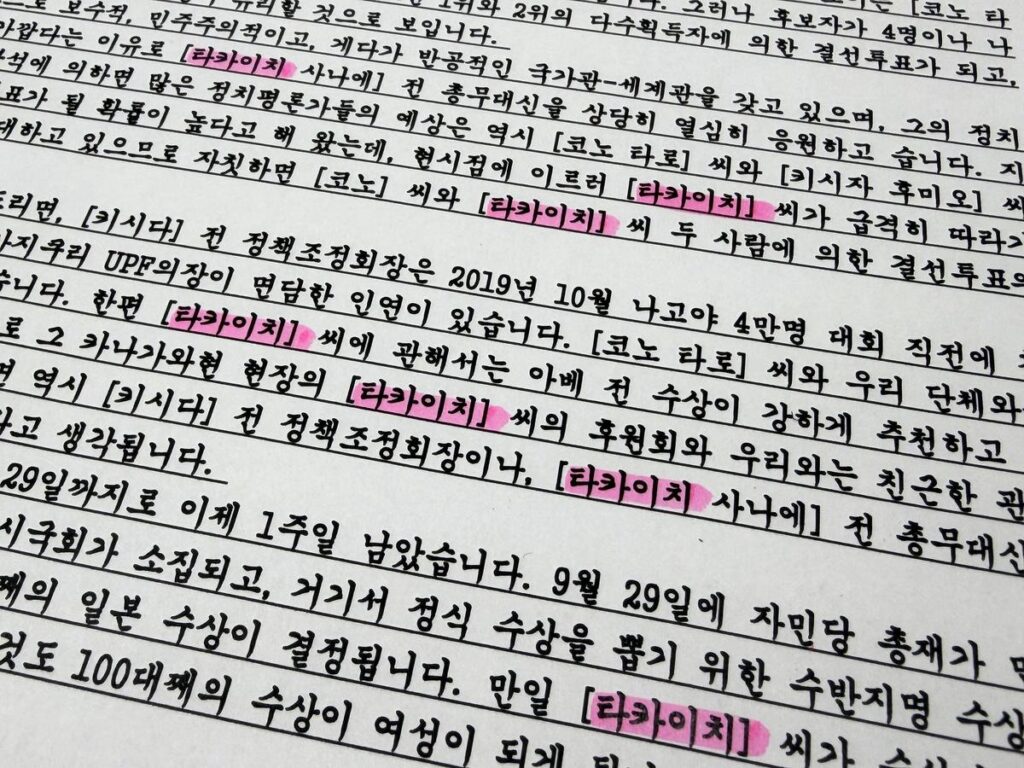 으로 보수적, 민주주의적이고, 게다가 반공적인 국가관-세계관을 갖고 있으며, 그의 정치
유리할 것으로 보입니다.
1위와 2위의 다수획득자에 의한 결선투표가 되고,
그러나 후보자가 4명이나 나
[코노 타
아깝다는 이유로 [타카이치 사나에] 전 총무대신을 상당히 열심히 응원하고 습니다. 지
석에 의하면 많은 정치평론가들의 예상은 역시 [코노 타로] 씨와 [키시자 후미오] 씨
표가 될 확률이 높다고 해 왔는데, 현시점에 이르러 [타카이치] 씨가 급격히 따라
대하고 있으므로 자칫하면 [코노] 씨와 [타카이치] 씨 두 사람에 의한 결선투표의
드리면, [키시다] 전 정책조정회장은 2019년 10월 나고야 4만명 대회 직전에
마지우리 UPF의장이 면담한 인연이 있습니다. [코노 타로] 씨와 우리 단체와
습니다. 한편 [타카이치] 씨에 관해서는 아베 전 수상이 강하게 추천하고
로 그 카나가와현 현장의 [타카이치] 씨의 후원회와 우리와는 친근한 관
면 역시 [키시다] 전 정책조정회장이나, [타카이치 사나에] 전 총무대신
라고 생각됩니다.
29일까지로 이제 1주일 남았습니다. 9월 29일에 자민당 총재가
시국회가 소집되고, 거기서 정식 수상을 뽑기 위한 수반지명
째의 일본 수상이 결정됩니다. 만일 [타카이치] 씨가 수상
것도 100대째의 수상이 여성이 되게